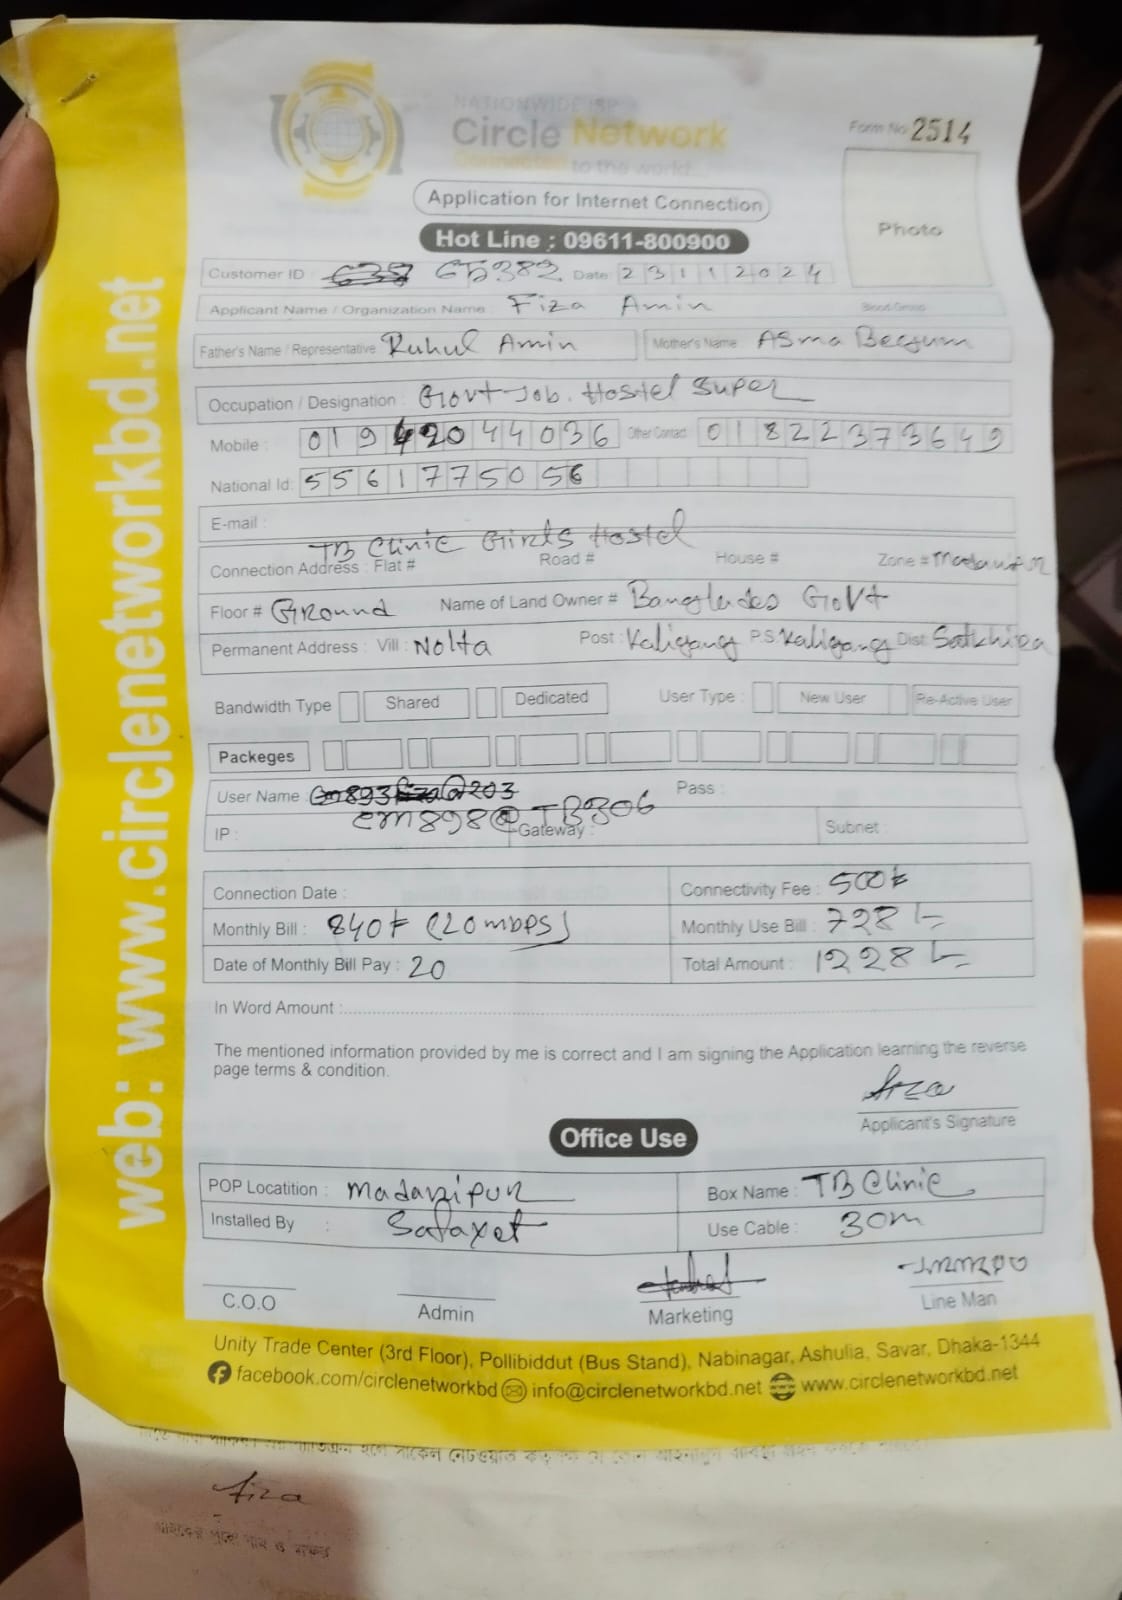 NATIONWIDE ISP
Circle Network
Connected to the world...
Form No 2514
Photo
Application for Internet Connection
Hot Line : 09611-800900
Customer ID : 65382 Date: 23112024
Applicant Name / Organization Name : Fiza Amin Blood Group
Father's Name / Representative Ruhul Amin Mother's Name ASma Begum
Occupation / Designation : Govt Job. Hostel Super
Mobile : 01942044036 Other Contact 01822373649
National Id: 5561775056
E-mail :
TB Clinic Girls Hostel
Connection Address : Flat # Road # House # Zone #
Floor # Ground Name of Land Owner # Banglades Govt
Permanent Address : Vill : Nolta Post : Kaligang P.S Kaligang Dist: Satkhira
Bandwidth Type Shared Dedicated User Type : New User Re-Active User
Packeges
User Name : Pass :
cm898@TB306
IP : Gateway : Subnet :
Connection Date : Connectivity Fee : 500৳
Monthly Bill : 840৳ (20 mbps) Monthly Use Bill : 728/=
Date of Monthly Bill Pay : 20 Total Amount : 1228/=
In Word Amount :
The mentioned information provided by me is correct and I am signing the Application learning the reverse
page terms & condition.
Fiza
Applicant's Signature
Office Use
POP Locatition : Madaripur Box Name : TB Clinic
Installed By : Safayet Use Cable : 30m
C.O.O Admin Marketing Line Man
Unity Trade Center (3rd Floor), Pollibiddut (Bus Stand), Nabinagar, Ashulia, Savar, Dhaka-1344
facebook.com/circlenetworkbd info@circlenetworkbd.net www.circlenetworkbd.net
web: www.circlenetworkbd.net
Fiza